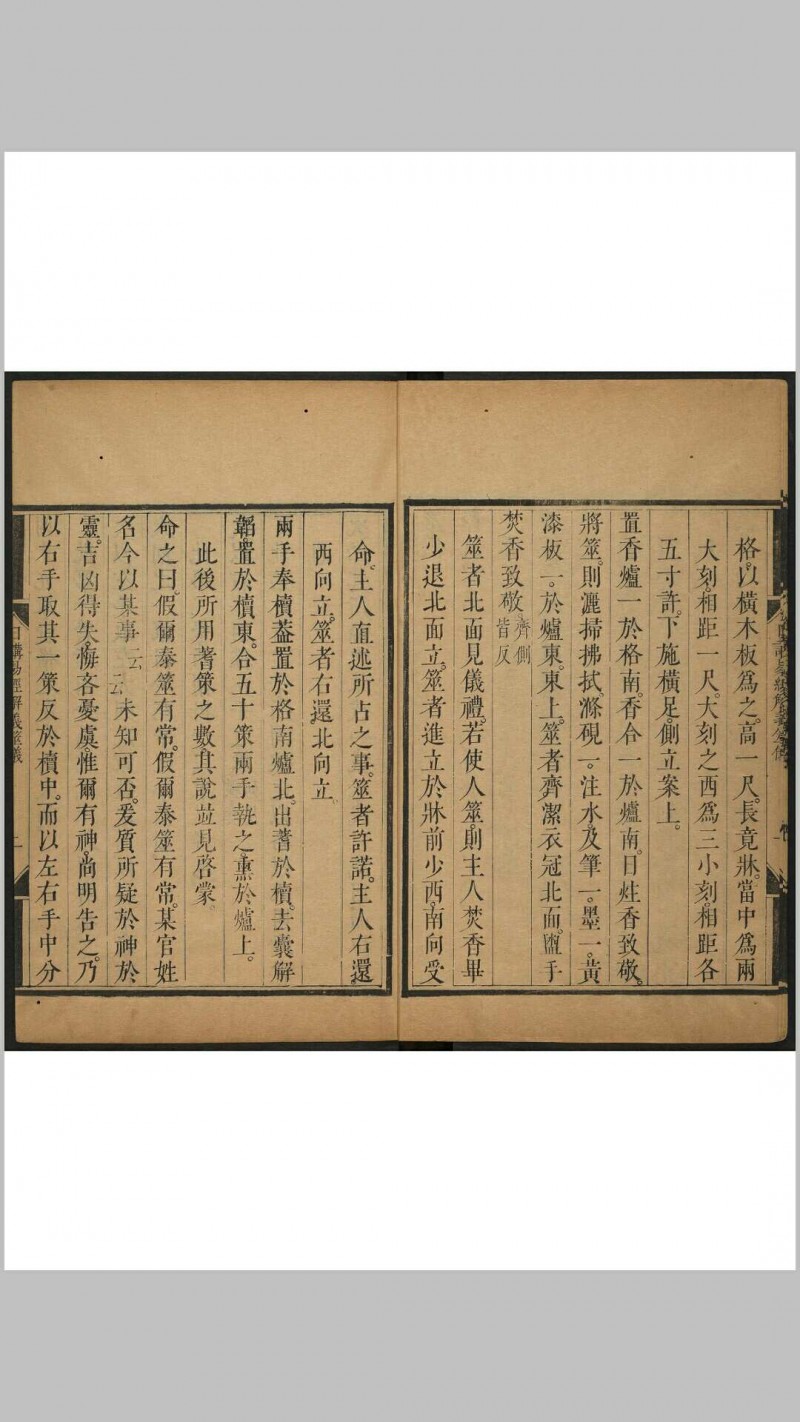 格。以橫木板爲之。高一尺。長竟牀。當中爲兩
大刻。相距一尺。大刻之西爲三小刻。相距各
五寸許。下施橫足。側立案上。
置香爐一於格南。香合一於爐南。日炷香致敬。
將筮。則灑掃拂拭。滌硯一。注水及筆一。墨一。黃
漆板一。於爐東。東上。筮者齊潔衣冠北面。盥手
焚香致敬。齊側皆反
筮者北面見儀禮。若使人筮。則主人焚香畢
少退北面立。筮者進立於牀前少西。南向受
命。主人直述所占之事。筮者許諾。主人右還
西向立。筮者右還北向立
兩手奉櫝蓋置於格南爐北。出蓍於櫝。去囊解
韜置於櫝東。合五十策兩手執之熏於爐上。
此後所用蓍策之數其說竝見啓蒙
命之曰。假爾泰筮有常。假爾泰筮有常。某官姓
名今以某事云云未知可否。爰質所疑於神於
靈。吉凶得失。悔吝憂虞。惟爾有神。尚明告之。乃
以右手取其一策反於櫝中。而以左右手中分
日講易經解義筮儀
二